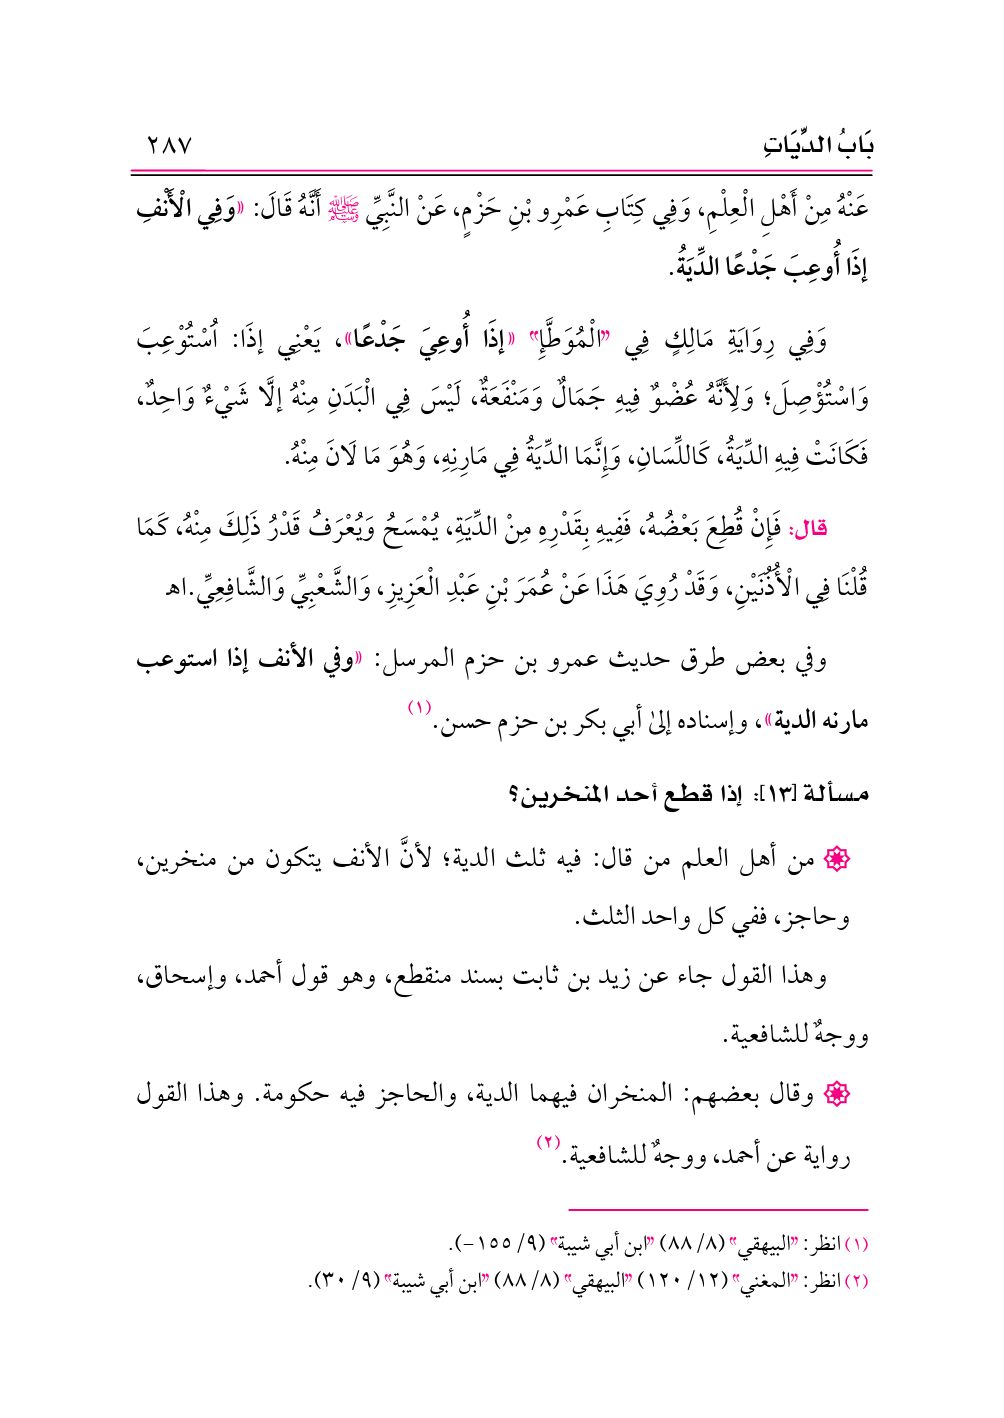 بَابُ الدِّيَاتِ ٢٨٧
عَنْهُ مِنْ أَهْلِ الْعِلْمِ، وَفِي كِتَابِ عَمْرِو بْنِ حَزْمٍ، عَنْ النَّبِيِّ ﷺ أَنَّهُ قَالَ: «وَفِي الْأَنْفِ
إذَا أُوعِبَ جَدْعًا الدِّيَةُ.
وَفِي رِوَايَةِ مَالِكٍ فِي "الْمُوَطَّإِ" «إذَا أُوعِيَ جَدْعًا»، يَعْنِي إذَا: اُسْتُوْعِبَ
وَاسْتُؤْصِلَ؛ وَلِأَنَّهُ عُضْوٌ فِيهِ جَمَالٌ وَمَنْفَعَةٌ، لَيْسَ فِي الْبَدَنِ مِنْهُ إلَّا شَيْءٌ وَاحِدٌ،
فَكَانَتْ فِيهِ الدِّيَةُ، كَاللِّسَانِ، وَإِنَّمَا الدِّيَةُ فِي مَارِنِهِ، وَهُوَ مَا لَانَ مِنْهُ.
قال: فَإِنْ قُطِعَ بَعْضُهُ، فَفِيهِ بِقَدْرِهِ مِنْ الدِّيَةِ، يُمْسَحُ وَيُعْرَفُ قَدْرُ ذَلِكَ مِنْهُ، كَمَا
قُلْنَا فِي الْأُذُنَيْنِ، وَقَدْ رُوِيَ هَذَا عَنْ عُمَرَ بْنِ عَبْدِ الْعَزِيزِ، وَالشَّعْبِيِّ وَالشَّافِعِيِّ.اهـ
وفي بعض طرق حديث عمرو بن حزم المرسل: «وفي الأنف إذا استوعب
مارنه الدية»، وإسناده إلىٰ أبي بكر بن حزم حسن.(١)
مسألة [١٣]: إذا قطع أحد المنخرين؟
من أهل العلم من قال: فيه ثلث الدية؛ لأنَّ الأنف يتكون من منخرين،
وحاجز، ففي كل واحد الثلث.
وهذا القول جاء عن زيد بن ثابت بسند منقطع، وهو قول أحمد، وإسحاق،
ووجهٌ للشافعية.
وقال بعضهم: المنخران فيهما الدية، والحاجز فيه حكومة. وهذا القول
رواية عن أحمد، ووجهٌ للشافعية.(٢)
(١) انظر: "البيهقي" (٨/ ٨٨) "ابن أبي شيبة" (٩/ ١٥٥-).
(٢) انظر: "المغني" (١٢/ ١٢٠) "البيهقي" (٨/ ٨٨) "ابن أبي شيبة" (٩/ ٣٠).